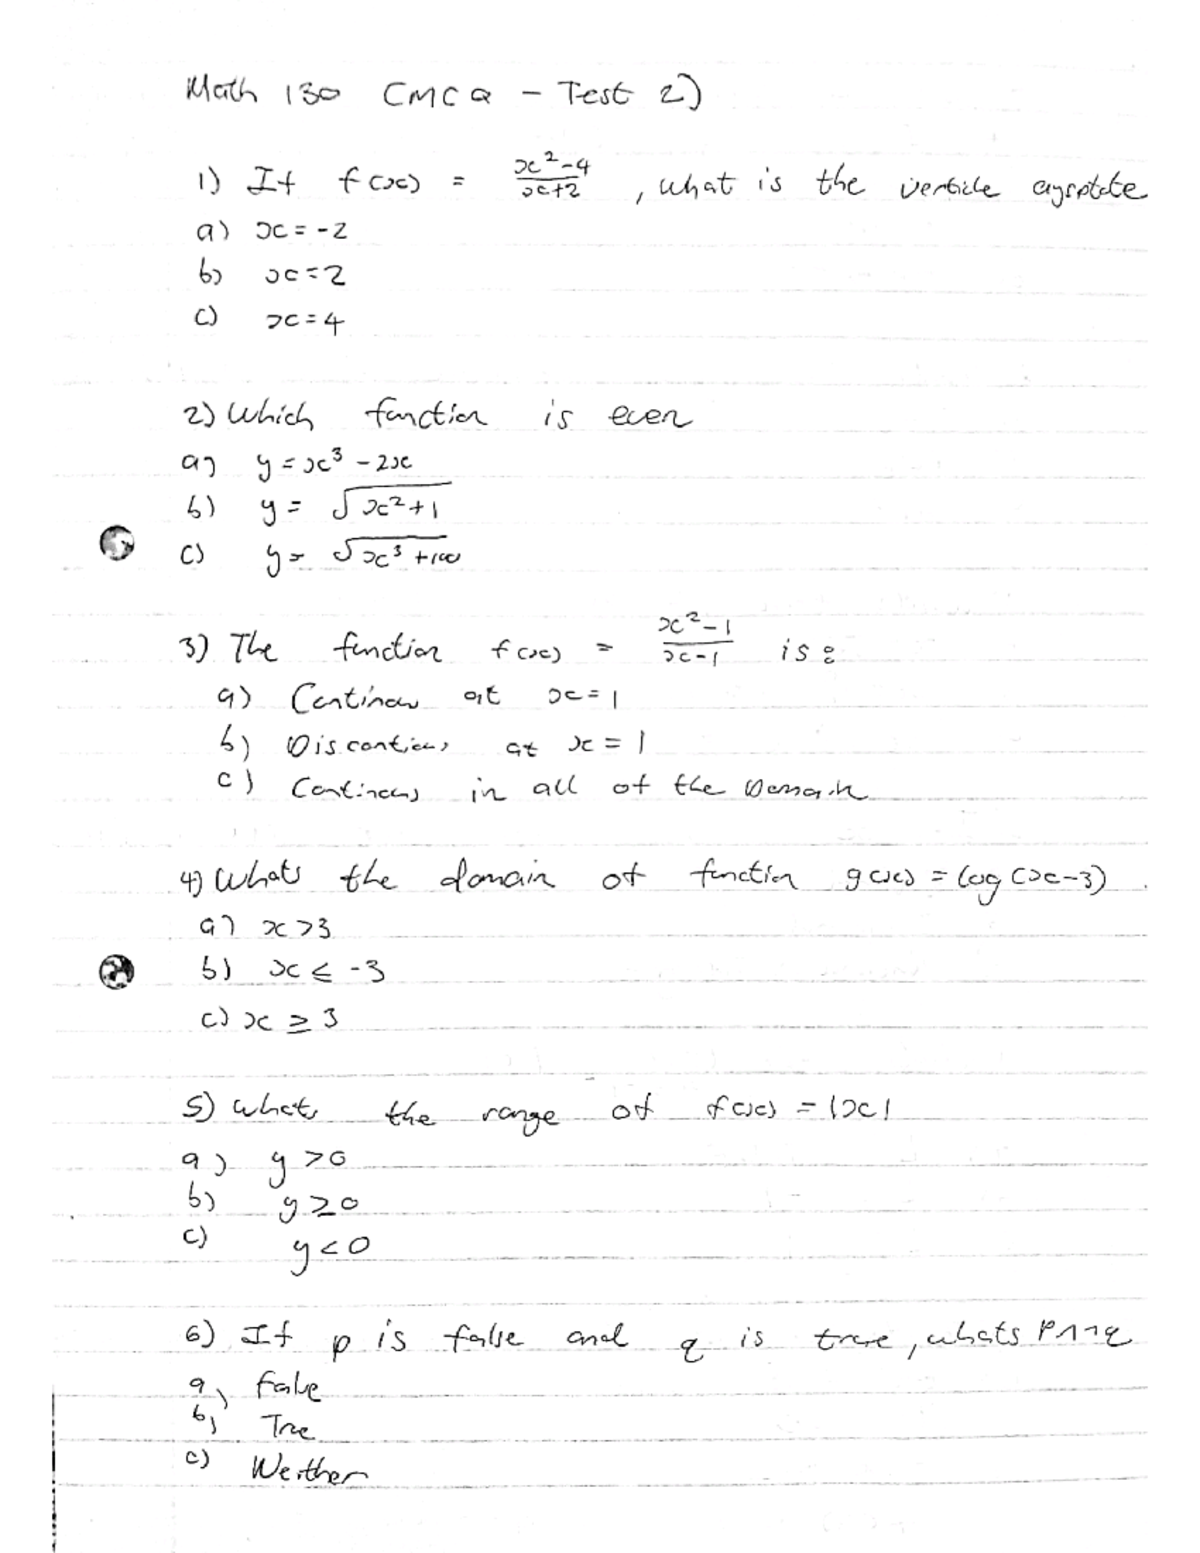 Math 130 CMCQ - Test 2)
1) If f(x) = x²-4 / x+2 , what is the verticle aysptote
a) x = -2
b) x = 2
c) x = 4
2) Which function is even
a) y = x³ - 2x
b) y = √x²+1
c) y = √x³+100
3) The function f(x) = x²-1 / x-1 is :
a) at x = 1
b) at x = 1
c) in all of the
4) Whats the domain of function g(x) = log(x-3)
a) x > 3
b) x ≤ -3
c) x ≥ 3
5) whats the range of f(x) = |x|
a) y > 0
b) y ≥ 0
c) y < 0
6) If p is false and q is true, whats P∧¬q
a) False
b) Tre
c)